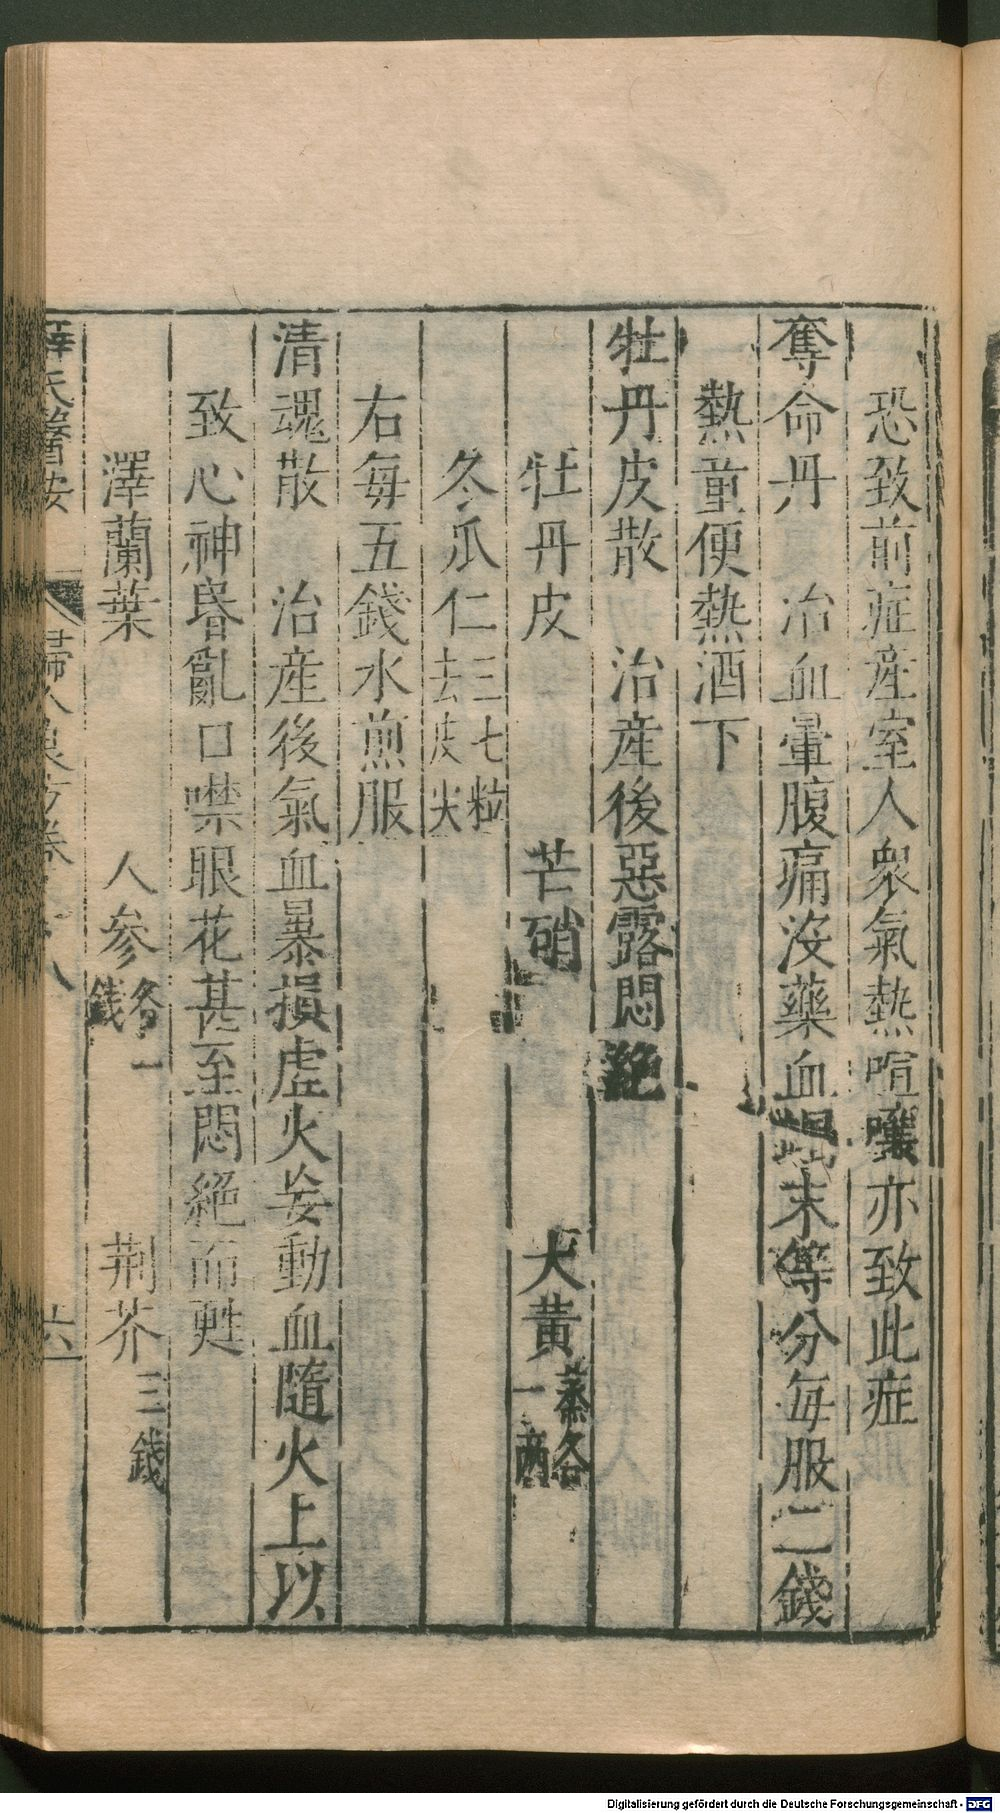 恐致前症產室人衆氣熱喧嚷亦致此症
奪命丹　治血暈腹痛沒藥血竭末等分每服二錢
熱童便熱酒下
牡丹皮散　治產後惡露悶絶
牡丹皮　芒硝　大黃蒸各一兩
冬瓜仁三七粒去皮尖
右每五錢水煎服
清魂散　治產後氣血暴損虛火妄動血隨火上以
致心神昏亂口噤眼花甚至悶絕而甦
澤蘭葉　人參各一錢　荆芥三錢
薛氏醫按　婦人良方卷　八　六
Digitalisierung gefördert durch die Deutsche Forschungsgemeinschaft - DFG